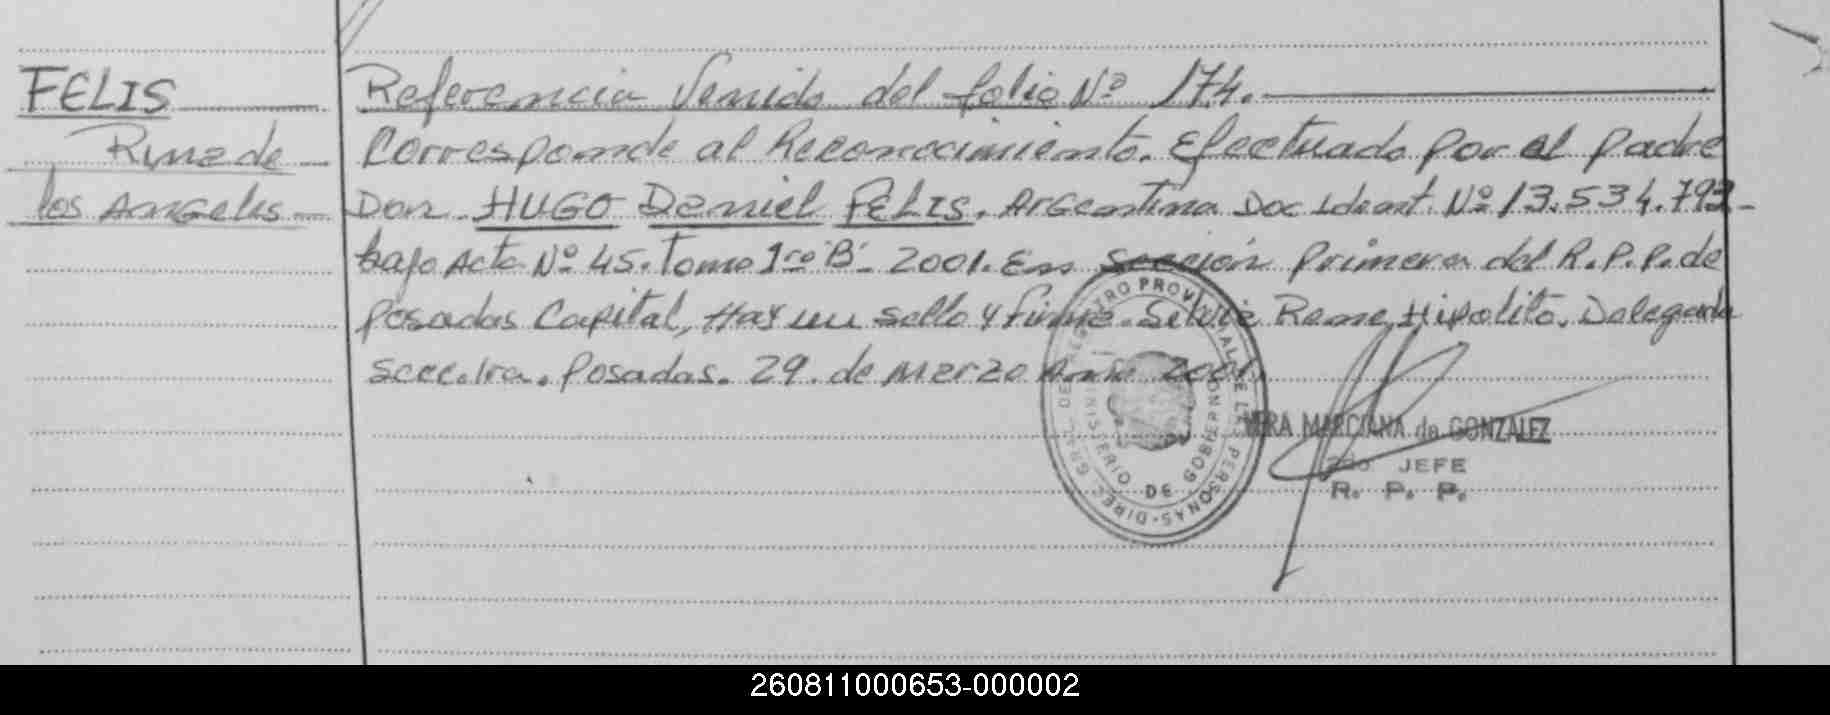 FELIS
Rina de
los Angeles
Referencia Venida del folio Nº 174.
Corresponde al Reconocimiento. Efectuado por el padre
Don HUGO Daniel FELIS. Argentina Doc Ident. Nº 13.534.793
bajo Acta Nº 45. Tomo 1ro "B" 2001. En Sección Primera del R.P.P. de
Posadas Capital, Hay un sello y firma. Silvia Hipolito. Delegada
Secc.1ra. Posadas. 29. de Marzo Año 2001.
DIREC. GRAL. DE REGISTRO PROVINCIAL DE LAS PERSONAS
MINISTERIO DE GOBIERNO
VERA MARCIANA de GONZALEZ
2do. JEFE
R. P. P.
260811000653-000002